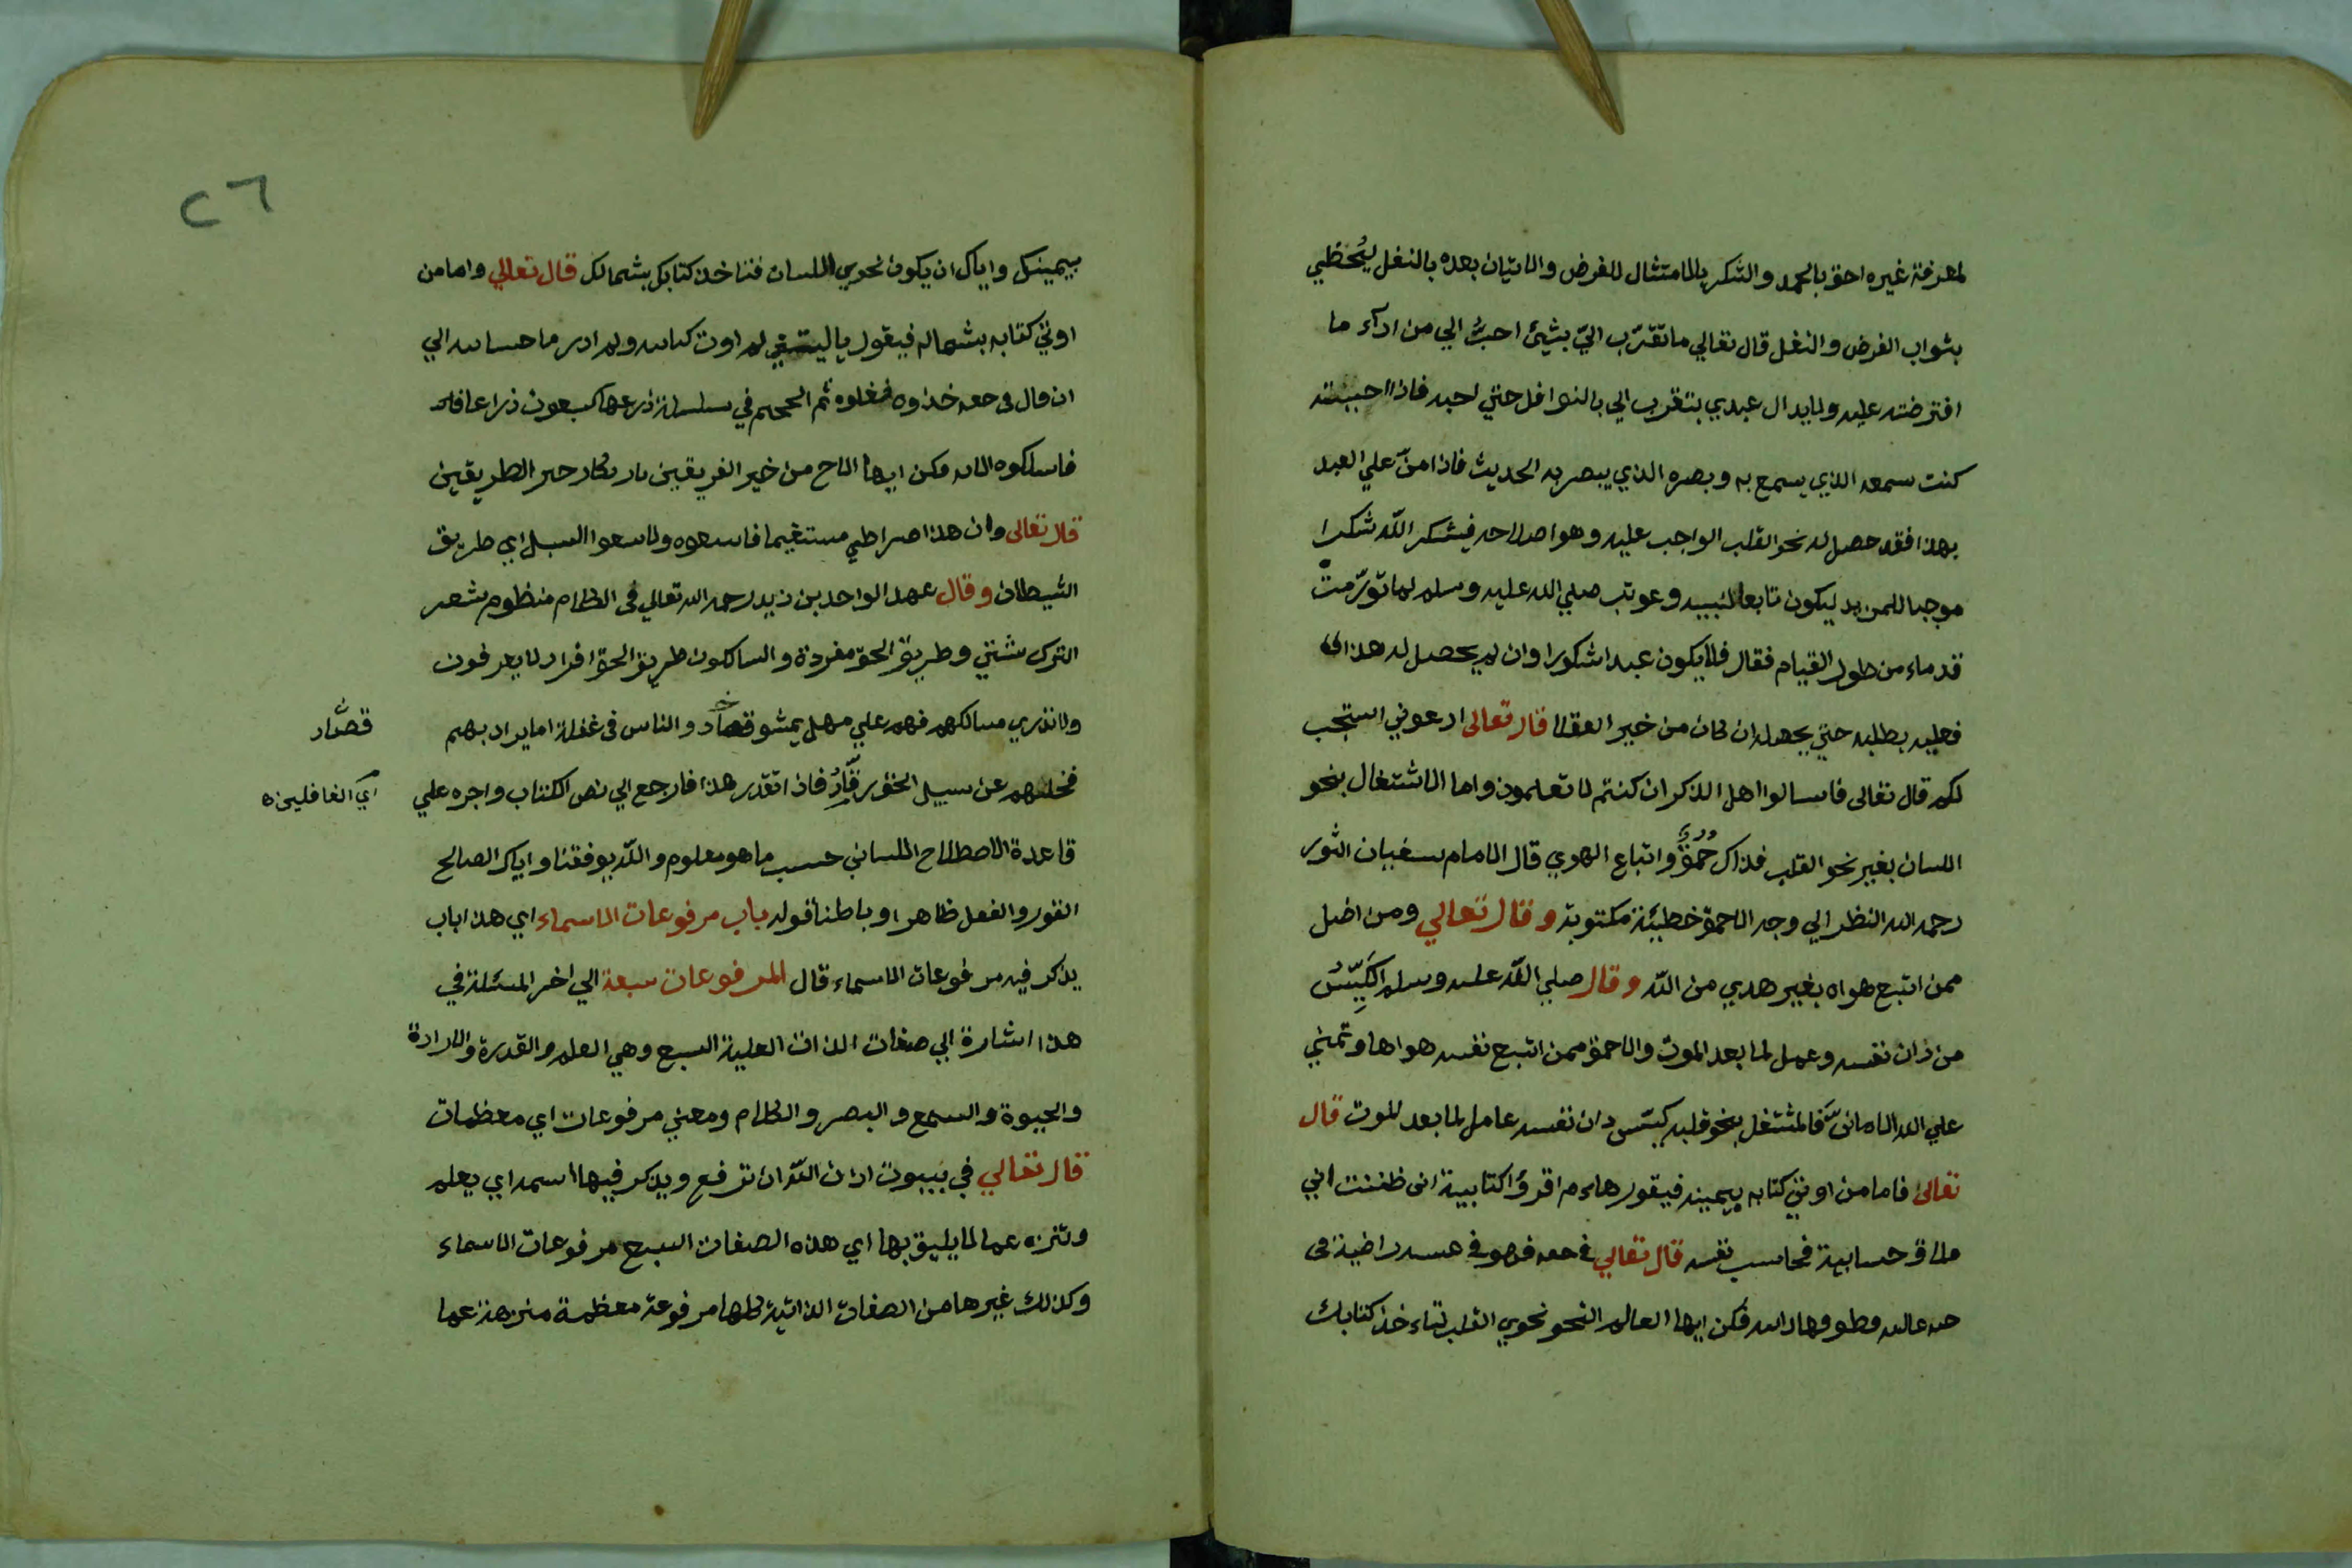 لمعرفة غيره احق بالحمد والشكر بالامتثال للفرض والاتيان بعده بالنفل ليحظي
بثواب الفرض والنفل قال تعالي ما تقرّب اليّ بشيئ احبُّ الي من ادآء ما
افترضته عليه ولايزال عبدي يتقرب الي بالنوافل حتي احبه فاذا احببته
كنت سمعه الذي يسمع به وبصره الذي يبصر به الحديث فاذا منّ علي العبد
بهذا فقد حصل له نحو القلب الواجب عليه وهو اصلاحه فيشكر الله شكرا
موجبا للمزيد ليكون تابعا لنبييه وعوتب صلي الله عليه وسلم لما تورّمت
قدماه من طول القيام فقال افلا يكون عبدا شكورا وان لم يحصل له هذا
فعليه بطلبه حتي يحصله ان كان من خير العقلا قال تعالى ادعوني استجب
لكم قال تعالى فاسالوا اهل الذكر ان كنتم لا تعلمون واما الاشتغال بنحو
اللسان بغير نحو القلب فذاك حُمقٌ واتباع الهوي قال الامام سفيان الثور
رحمه الله النظر الي وجه الاحمق خطيئة مكتوبة وقال تعالي ومن اضل
ممن اتبع هواه بغير هدي من الله وقال صلي الله عليه وسلم الكَيِّسُ
من دان نفسه وعمل لما بعد الموت والاحمق ممن اتبع نفسه هواها وتمني
علي الله الامانيَّ فالمشتغل بنحو قلبه كيّس دان نفسه عامل لما بعد الموت قال
تعالى فاما من اوتي كتابه بيمينه فيقول هاءم اقرؤا كتابية انى ظننت اني
ملاق حسابية فحاسب نفسه قال تعالي في حقه فهو في عيشة راضية في
جنة عالية قطوفها دانية فكن ايها العالم النحو نحوي القلب لتاءخذ كتابك
٢٦
بيمينك واياك ان يكون نحوي اللسان فتاخذ كتابك بشمالك قال تعالي واما من
اوتي كتابه بشماله فيقول يا ليتني لم اوت كتابيه ولم ادر ما حسابيه الي
ان قال في حقه خذوه فغلوه ثم الجحيم في سلسلة ذرعها سبعون ذراعا
فاسلكوه الايه فكن ايها الاخ من خير الفريقين خير الطريقين
قال تعالى وان هذا صراطي مستقيما فاتبعوه ولا تتبعوا السبل اي طريق
الشيطان وقال عبد الواحد بن زيد رحمه الله تعالي في الكلام منظوم شعر
الترك شتي وطريق الحق مفردة والسالكون طريق الحق افراد لا يعرفون
ولا تدري مسالكهم فهم علي مهل يمشو قصاد والناس في غفلة اما يراد بهم
قصّاد
فجلهم عن سبيل الخور فاذا اتقدر هذا فارجع الي نص الكتاب واجره علي
اي الغافلين ه
قاعدة الاصطلاح اللساني حسب ما هو معلوم والله يوفقنا واياك الصالح
القول والفعل ظاهرا وباطنا قوله باب مرفوعات الاسماء اي هذا باب
يذكر فيه مرفوعات الاسماء قال المرفوعات سبعة الي اخر المسئلة في
هذا اشارة الي صفات الذات العلية السبع وهي العلم والقدرة والارادة
والحيوة والسمع والبصر والكلام ومعني مرفوعات اي معظمات
قال تعالي في بيوت اذن الله ان ترفع ويذكر فيها اسمه اي يعلم
وتنزه عما لا يليق بها اي هذه الصفات السبع مرفوعات الاسماء
وكذلك غيرها من الصفات الذاتية كلها مرفوعة معظمة منزهة عما